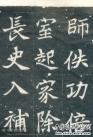 師佚功倍
室起家除
長史入補